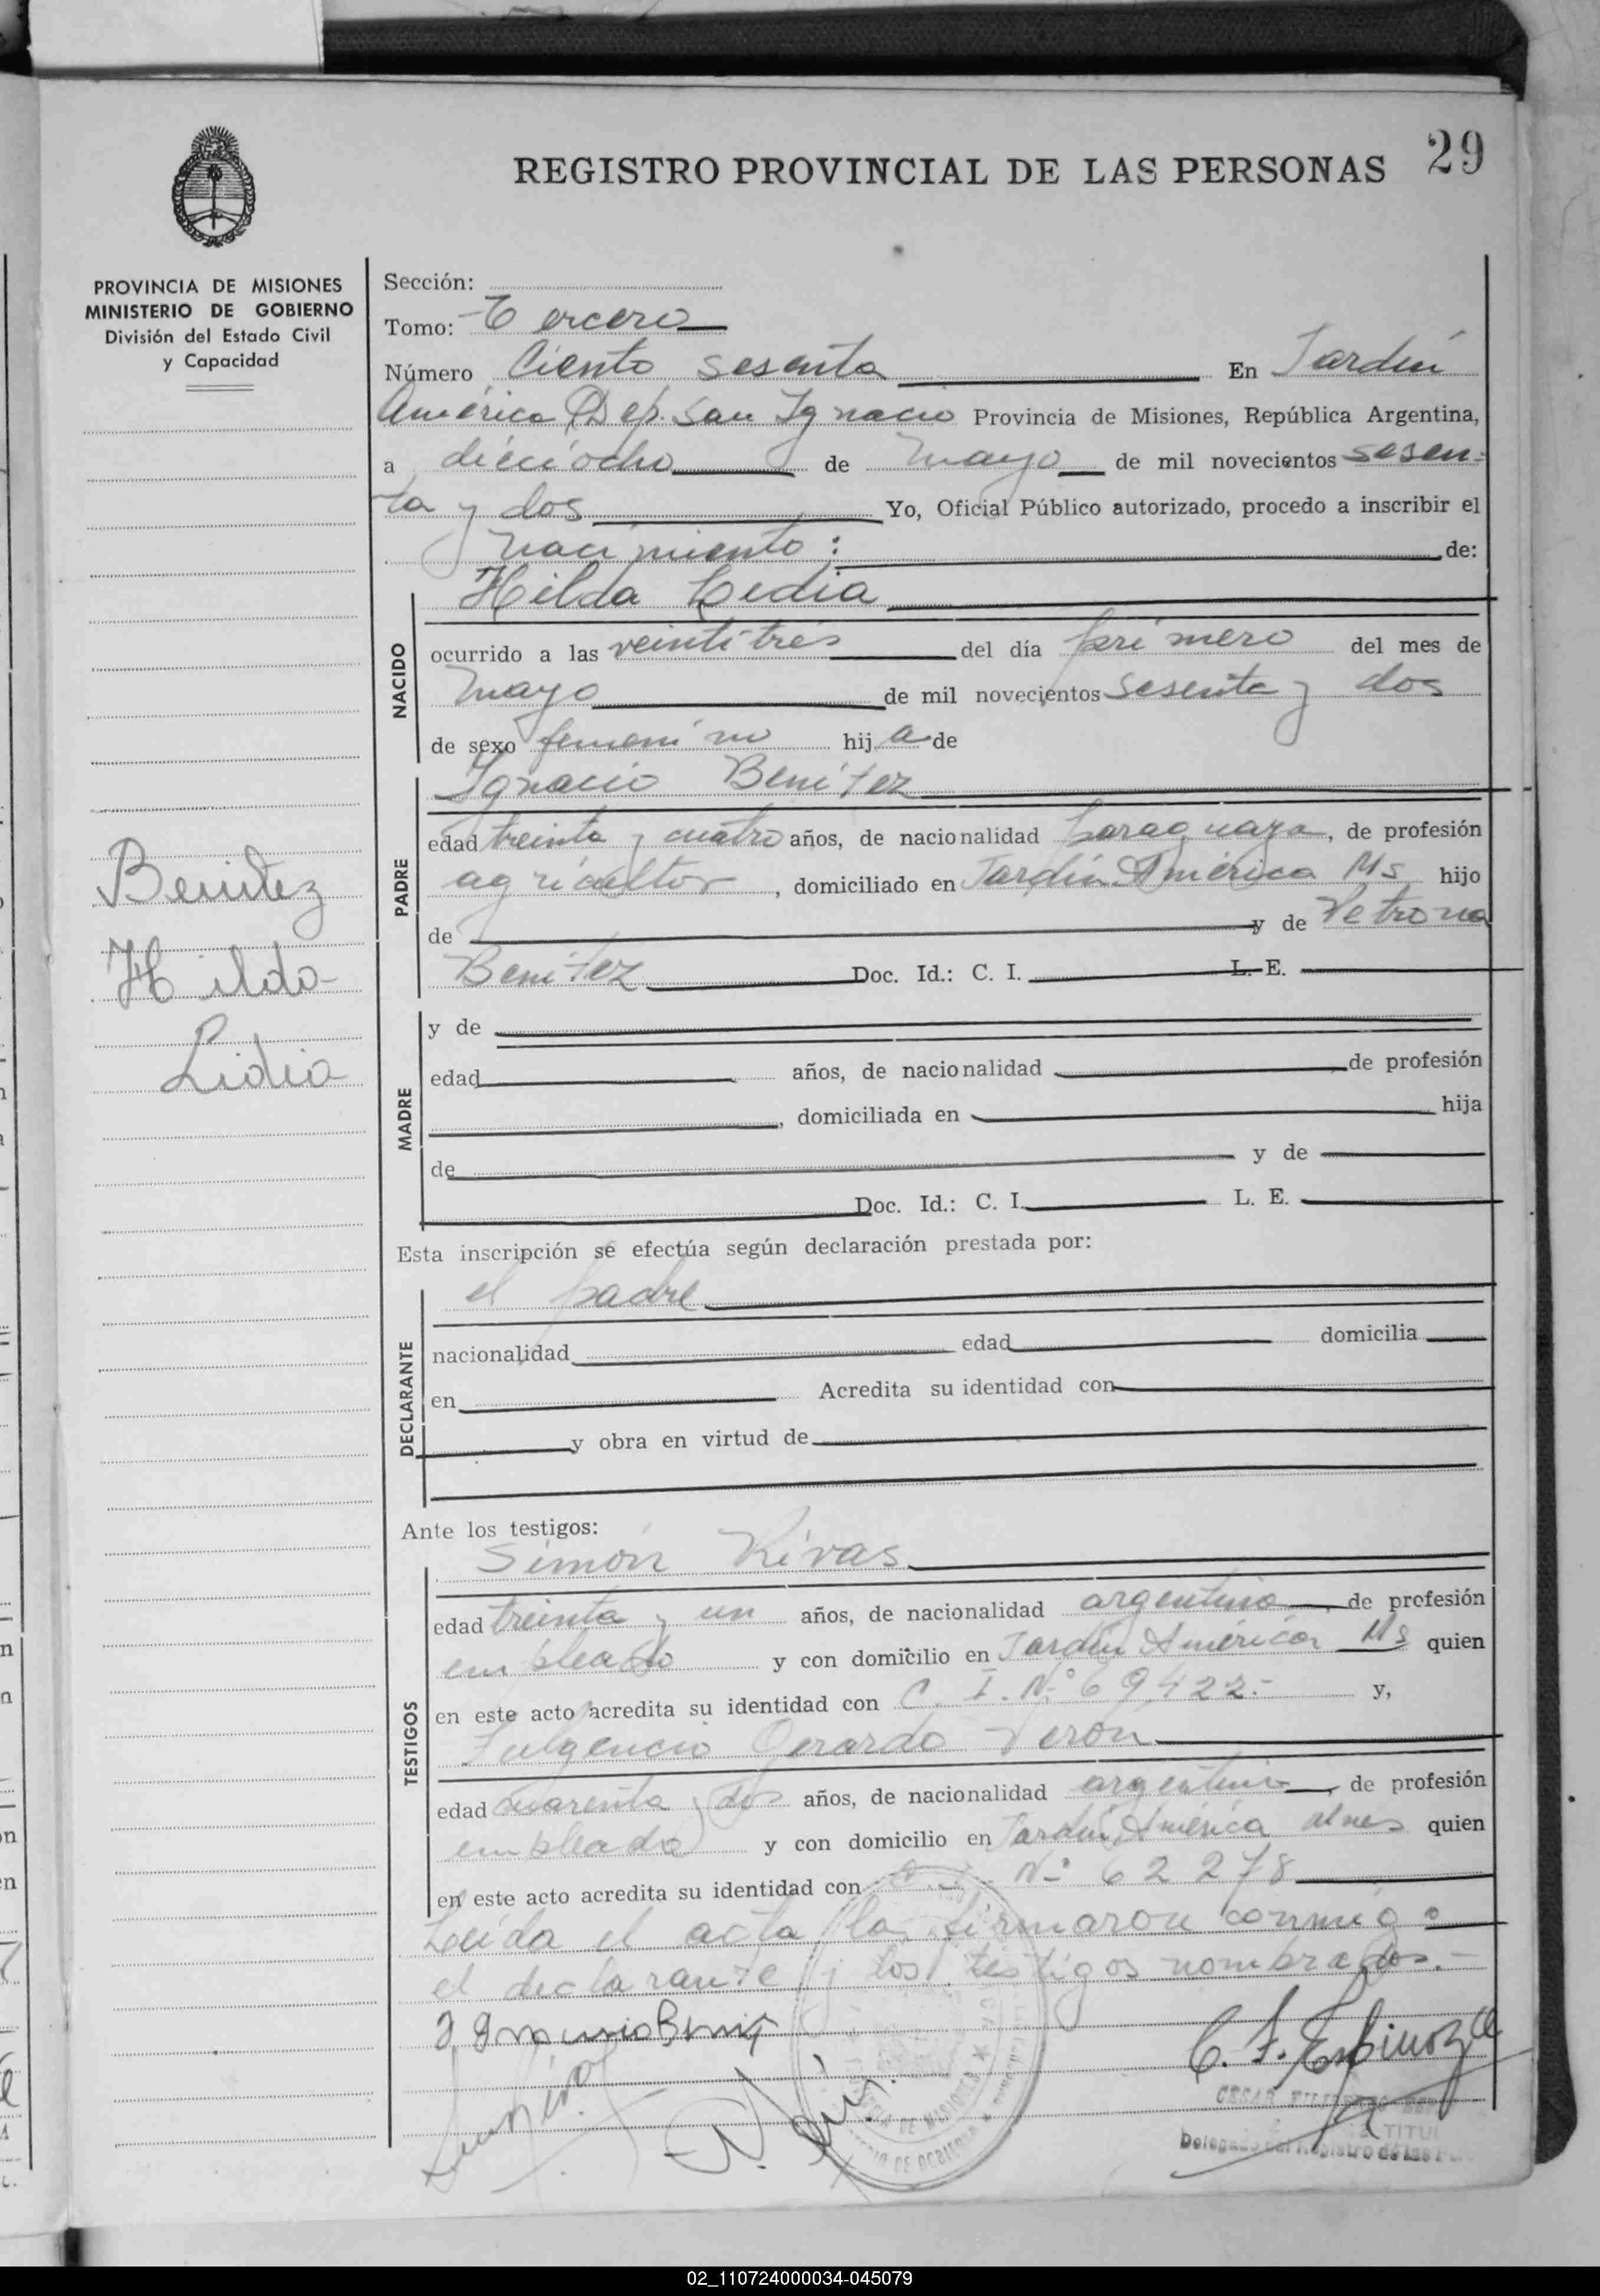 29
REGISTRO PROVINCIAL DE LAS PERSONAS
PROVINCIA DE MISIONES
MINISTERIO DE GOBIERNO
División del Estado Civil
y Capacidad
Benitez
Hilda
Lidia
Sección:
Tomo: Tercero
Número Ciento sesenta En Jardín
América Dep. San Ignacio Provincia de Misiones, República Argentina,
a dieciocho de mayo de mil novecientos sesen-
ta y dos Yo, Oficial Público autorizado, procedo a inscribir el
nacimiento: de:
NACIDO
Hilda Ledia
ocurrido a las veintitrés del día primero del mes de
mayo de mil novecientos sesenta y dos
de sexo femenino hij a de
PADRE
Ignacio Benítez
edad treinta y cuatro años, de nacionalidad paraguaya, de profesión
agricultor, domiciliado en Jardín América Ms hijo
de y de Petrona
Benítez Doc. Id.: C. I. L. E.
MADRE
y de
edad años, de nacionalidad de profesión
, domiciliada en hija
de y de
Doc. Id.: C. I. L. E.
Esta inscripción se efectúa según declaración prestada por:
DECLARANTE
el padre
nacionalidad edad domicilia
en Acredita su identidad con
y obra en virtud de
Ante los testigos:
TESTIGOS
Simón Rivas
edad treinta y un años, de nacionalidad argentino, de profesión
empleado y con domicilio en Jardín América Ms quien
en este acto acredita su identidad con C. I. Nº 69422.- y,
Fulgencio Gerardo Verón
edad cuarenta y dos años, de nacionalidad argentino, de profesión
empleado y con domicilio en Jardín América quien
en este acto acredita su identidad con Nº 62278
Leída el acta la firmaron conmigo
el declarante y los testigos nombrados.-
Ignacio Benit
C. F. Espinoza
CESAR
Delegado del Registro de las P
DE MISIONES
02_110724000034-045079